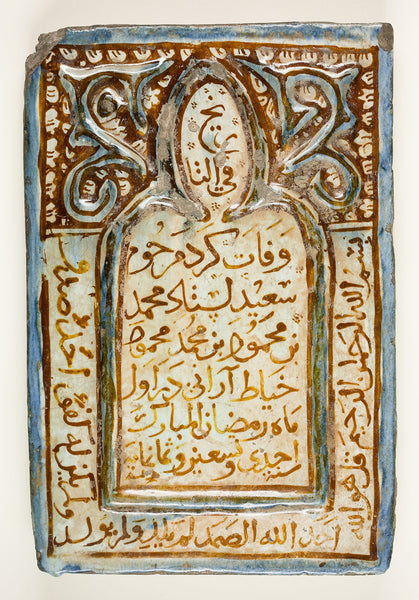 في التاريخ
وفات کرد مرحوم
سعید محمد
بن محمود بن محمد محمود
خیاط آرانی در اول
ماه رمضان المبارك
سنه احدى وتسعين وثمانمايه
بسم الله الرحمن الرحيم قل هو الله
احد الله الصمد لم يلد ولم يولد
ولم يكن له كفوا احد